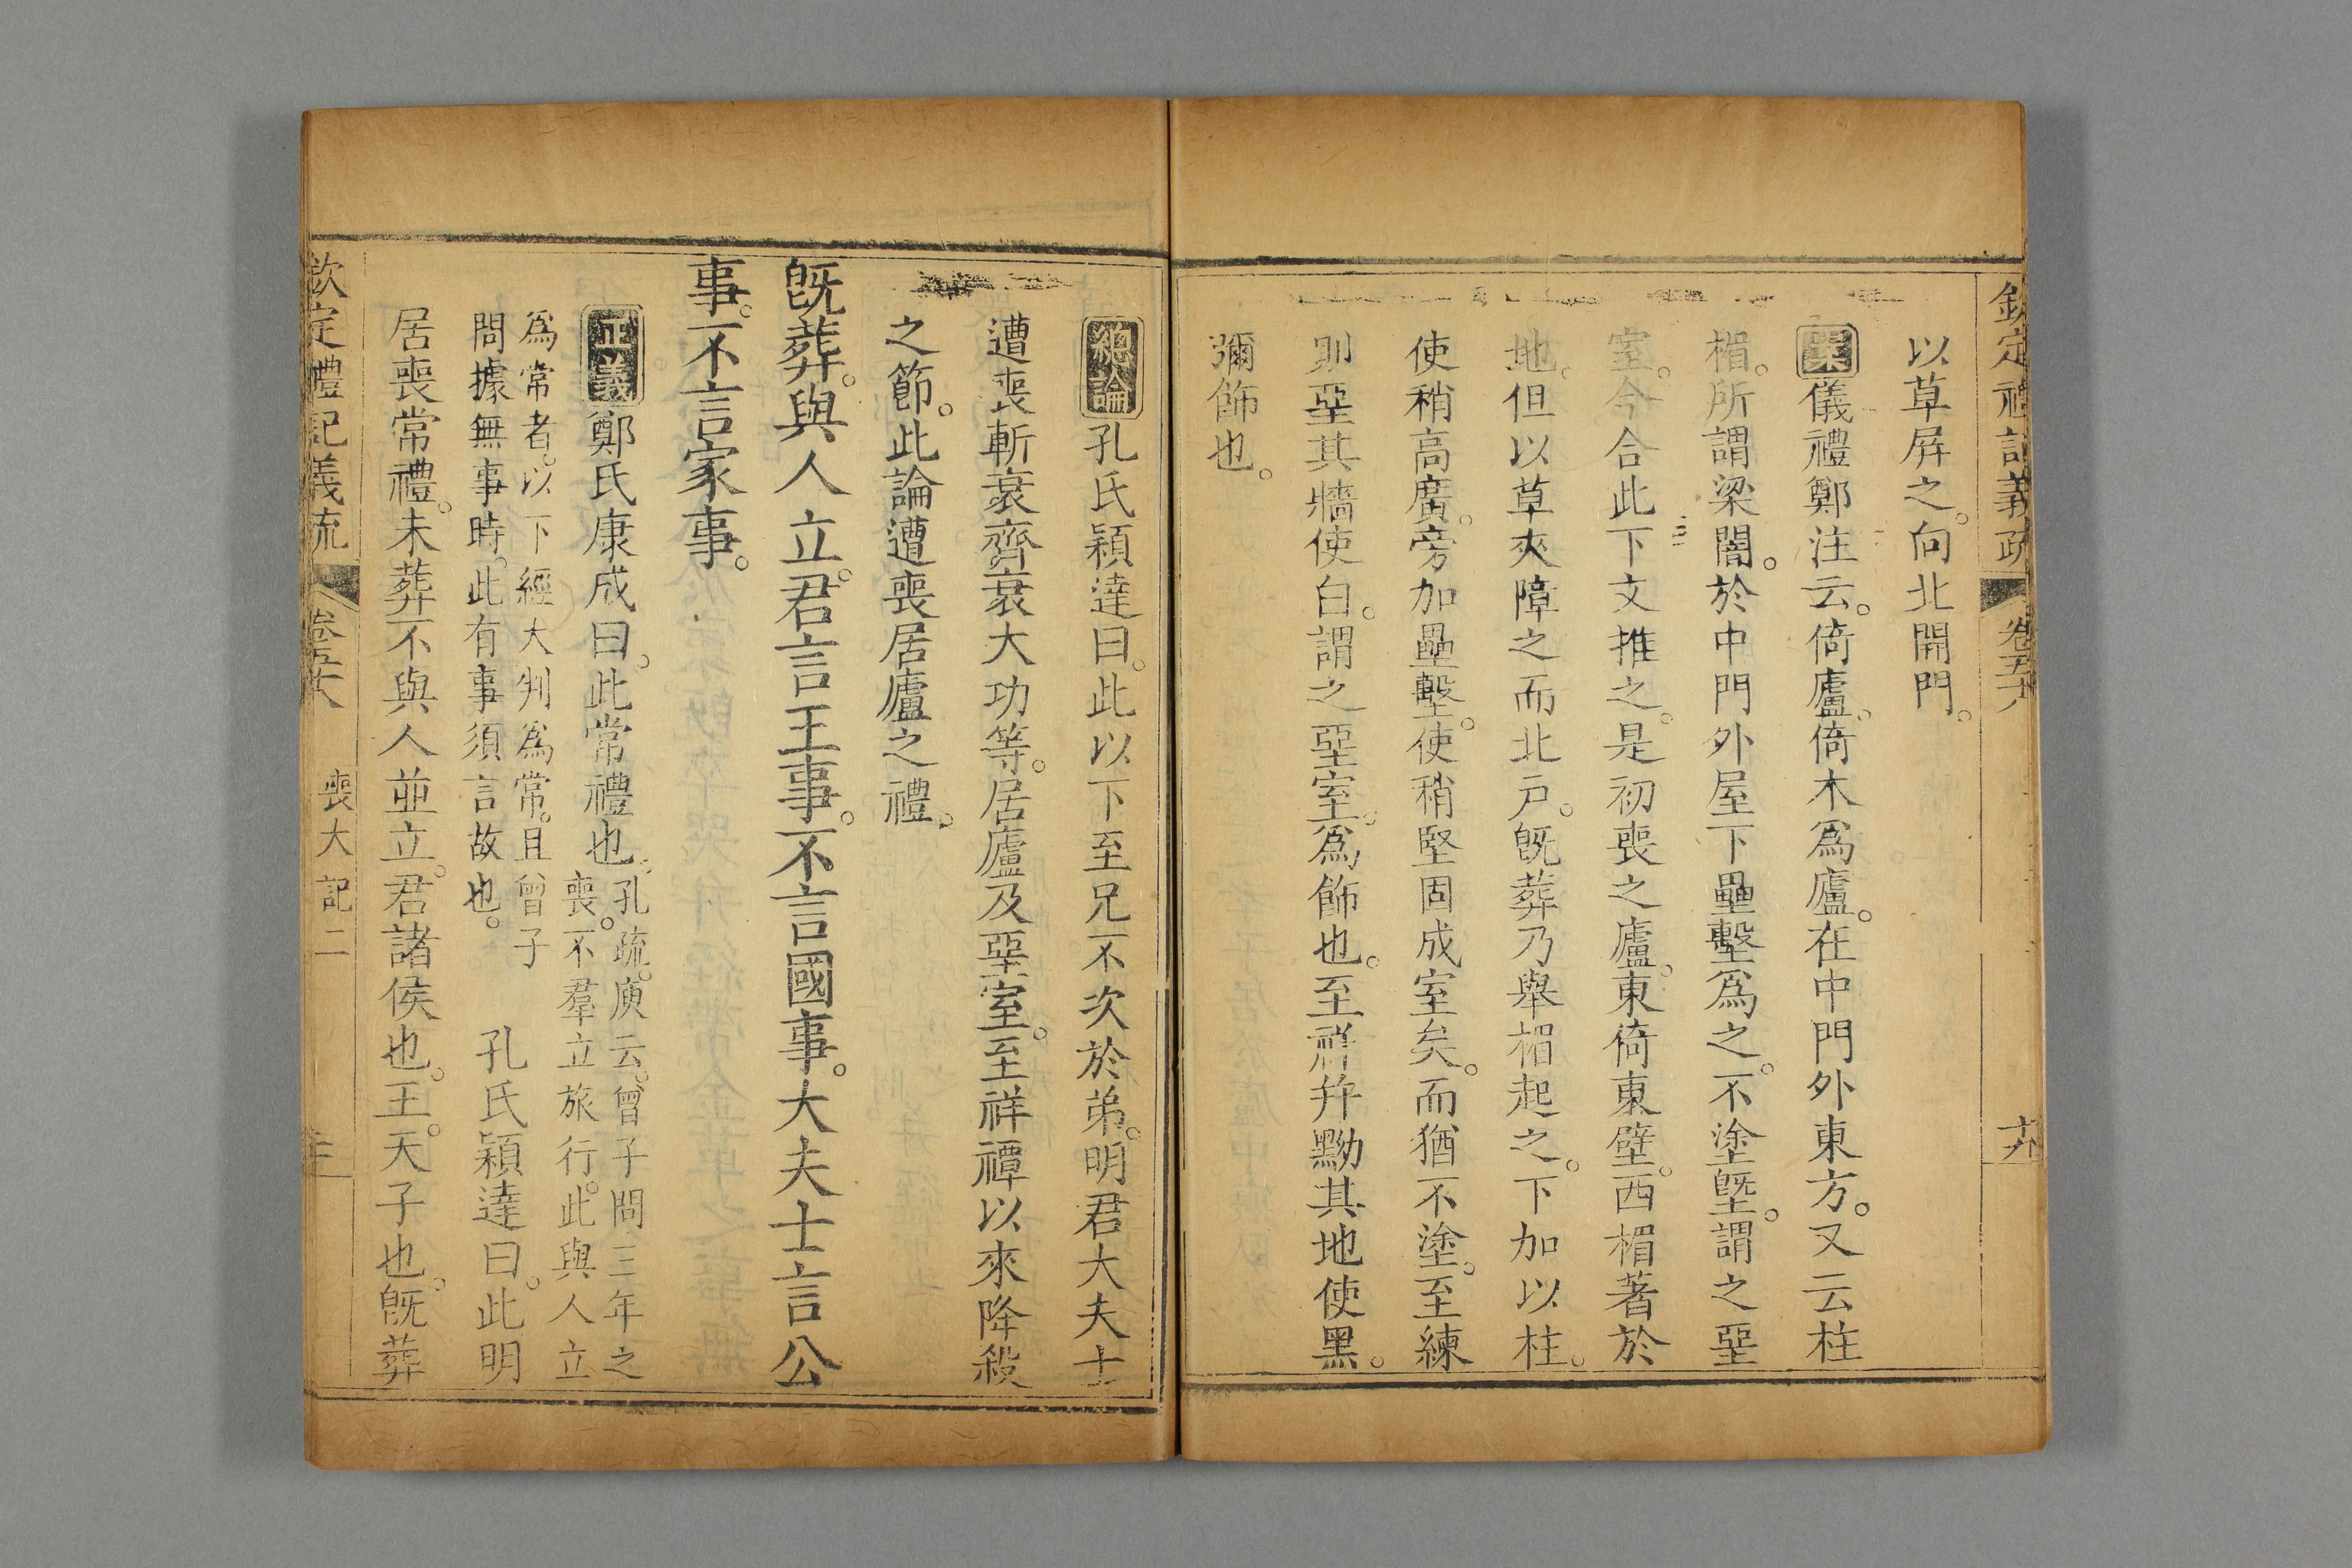 欽定禮記義疏 卷五十八 十九
以草屏之。向北開門。
案儀禮鄭注云。倚廬。倚木爲廬。在中門外東方。又云柱
楣。所謂梁闇。於中門外屋下壘墼爲之。不塗塈。謂之堊
室。今合此下文推之。是初喪之廬。東倚東壁。西楣著於
地。但以草夾障之而北戶。旣葬乃舉楣起之。下加以柱。
使稍高廣。旁加壘墼。使稍堅固成室矣。而猶不塗。至練
則堊其牆使白。謂之堊室。爲飾也。至祥幷黝其地使黑。
彌飾也。
總論孔氏穎達曰。此以下至兄不次於弟。明君大夫士
遭喪斬衰齊衰大功等。居廬及堊室。至祥禫以來降殺
之節。此論遭喪居廬之禮。
旣葬。與人立。君言王事。不言國事。大夫士言公
事。不言家事。
正義鄭氏康成曰。此常禮也。孔疏。庾云。曾子問三年之
喪。不羣立旅行。此與人立
爲常者。以下經大判爲常。且曾子
問據無事時。此有事須言故也。
孔氏穎達曰。此明
居喪常禮。未葬不與人並立。君諸侯也。王。天子也。旣葬
欽定禮記義疏 卷五十八 喪大記二